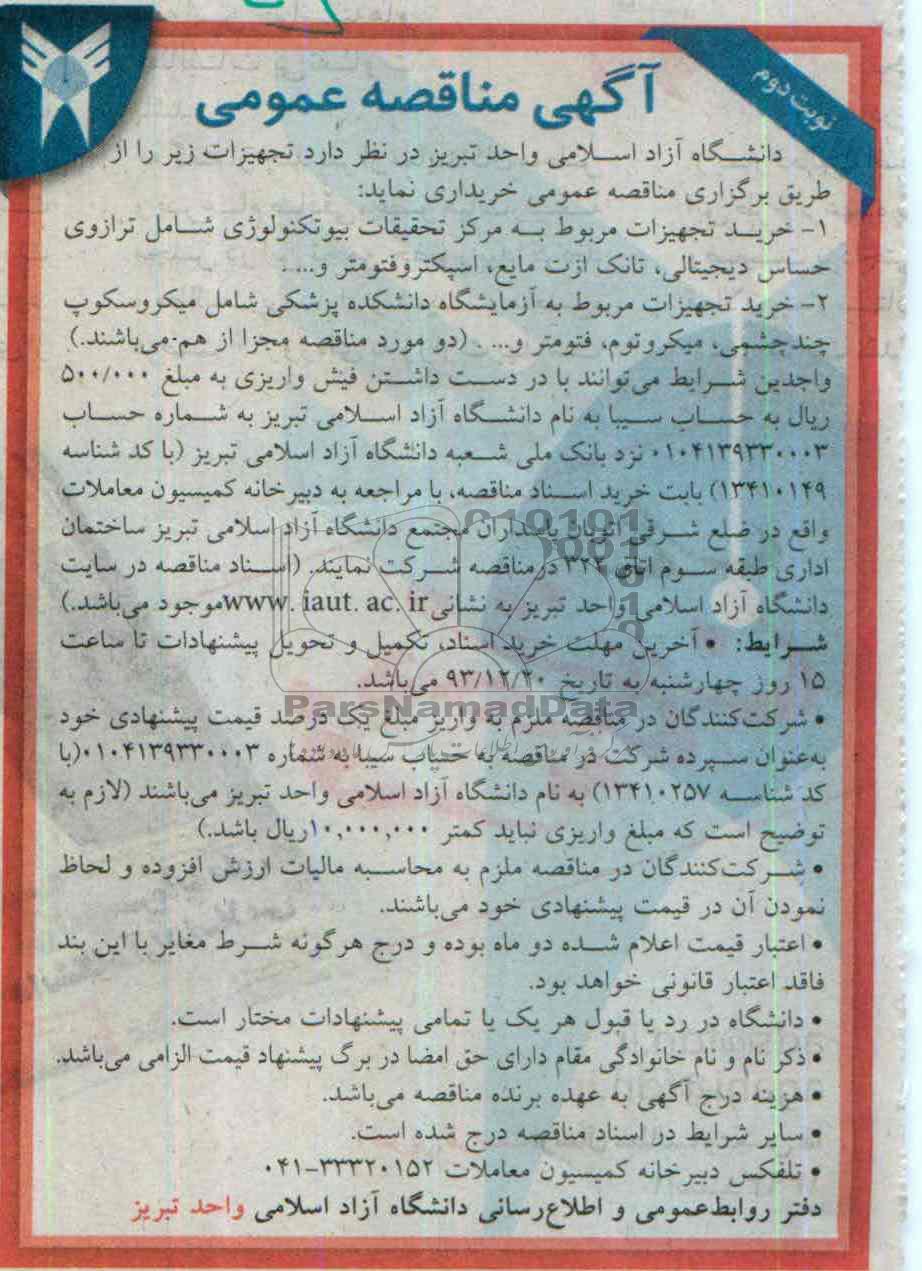 نوبت دوم
آگهی مناقصه عمومی
دانشگاه آزاد اسلامی واحد تبریز در نظر دارد تجهیزات زیر را از
طریق برگزاری مناقصه عمومی خریداری نماید:
۱- خرید تجهیزات مربوط به مرکز تحقیقات بیوتکنولوژی شامل ترازوی
حساس دیجیتالی، تانک ازت مایع، اسپکتروفتومتر و... .
۲- خرید تجهیزات مربوط به آزمایشگاه دانشکده پزشکی شامل میکروسکوپ
چندچشمی، میکروتوم، فتومتر و... . (دو مورد مناقصه مجزا از هم می‌باشند.)
واجدین شرایط می‌توانند با در دست داشتن فیش واریزی به مبلغ ۵۰۰/۰۰۰
ریال به حساب سیبا به نام دانشگاه آزاد اسلامی تبریز به شماره حساب
۰۱۰۴۱۳۹۳۳۰۰۰۳ نزد بانک ملی شعبه دانشگاه آزاد اسلامی تبریز (با کد شناسه
۱۳۴۱۰۱۴۹) بابت خرید اسناد مناقصه، با مراجعه به دبیرخانه کمیسیون معاملات
واقع در ضلع شرقی اتوبان پاسداران مجتمع دانشگاه آزاد اسلامی تبریز ساختمان
اداری طبقه سوم اتاق ۳۲۲ درمناقصه شرکت نمایند. (اسناد مناقصه در سایت
دانشگاه آزاد اسلامی واحد تبریز به نشانی www.iaut.ac.ir موجود می‌باشد.)
شرایط: • آخرین مهلت خرید اسناد، تکمیل و تحویل پیشنهادات تا ساعت
۱۵ روز چهارشنبه به تاریخ ۹۳/۱۲/۲۰ می‌باشد.
ParsNamadData
• شرکت‌کنندگان در مناقصه ملزم به واریز مبلغ یک درصد قیمت پیشنهادی خود
به‌عنوان سپرده شرکت در مناقصه به حساب سیبا به شماره ۰۱۰۴۱۳۹۳۳۰۰۰۳ (با
کد شناسه ۱۳۴۱۰۲۵۷) به نام دانشگاه آزاد اسلامی واحد تبریز می‌باشند (لازم به
توضیح است که مبلغ واریزی نباید کمتر ۱۰,۰۰۰,۰۰۰ریال باشد.)
• شرکت‌کنندگان در مناقصه ملزم به محاسبه مالیات ارزش افزوده و لحاظ
نمودن آن در قیمت پیشنهادی خود می‌باشند.
• اعتبار قیمت اعلام شده دو ماه بوده و درج هرگونه شرط مغایر با این بند
فاقد اعتبار قانونی خواهد بود.
• دانشگاه در رد یا قبول هر یک یا تمامی پیشنهادات مختار است.
• ذکر نام و نام خانوادگی مقام دارای حق امضا در برگ پیشنهاد قیمت الزامی می‌باشد.
• هزینه درج آگهی به عهده برنده مناقصه می‌باشد.
• سایر شرایط در اسناد مناقصه درج شده است.
• تلفکس دبیرخانه کمیسیون معاملات ۳۳۳۲۰۱۵۲-۰۴۱
دفتر روابط‌عمومی و اطلاع‌رسانی دانشگاه آزاد اسلامی واحد تبریز